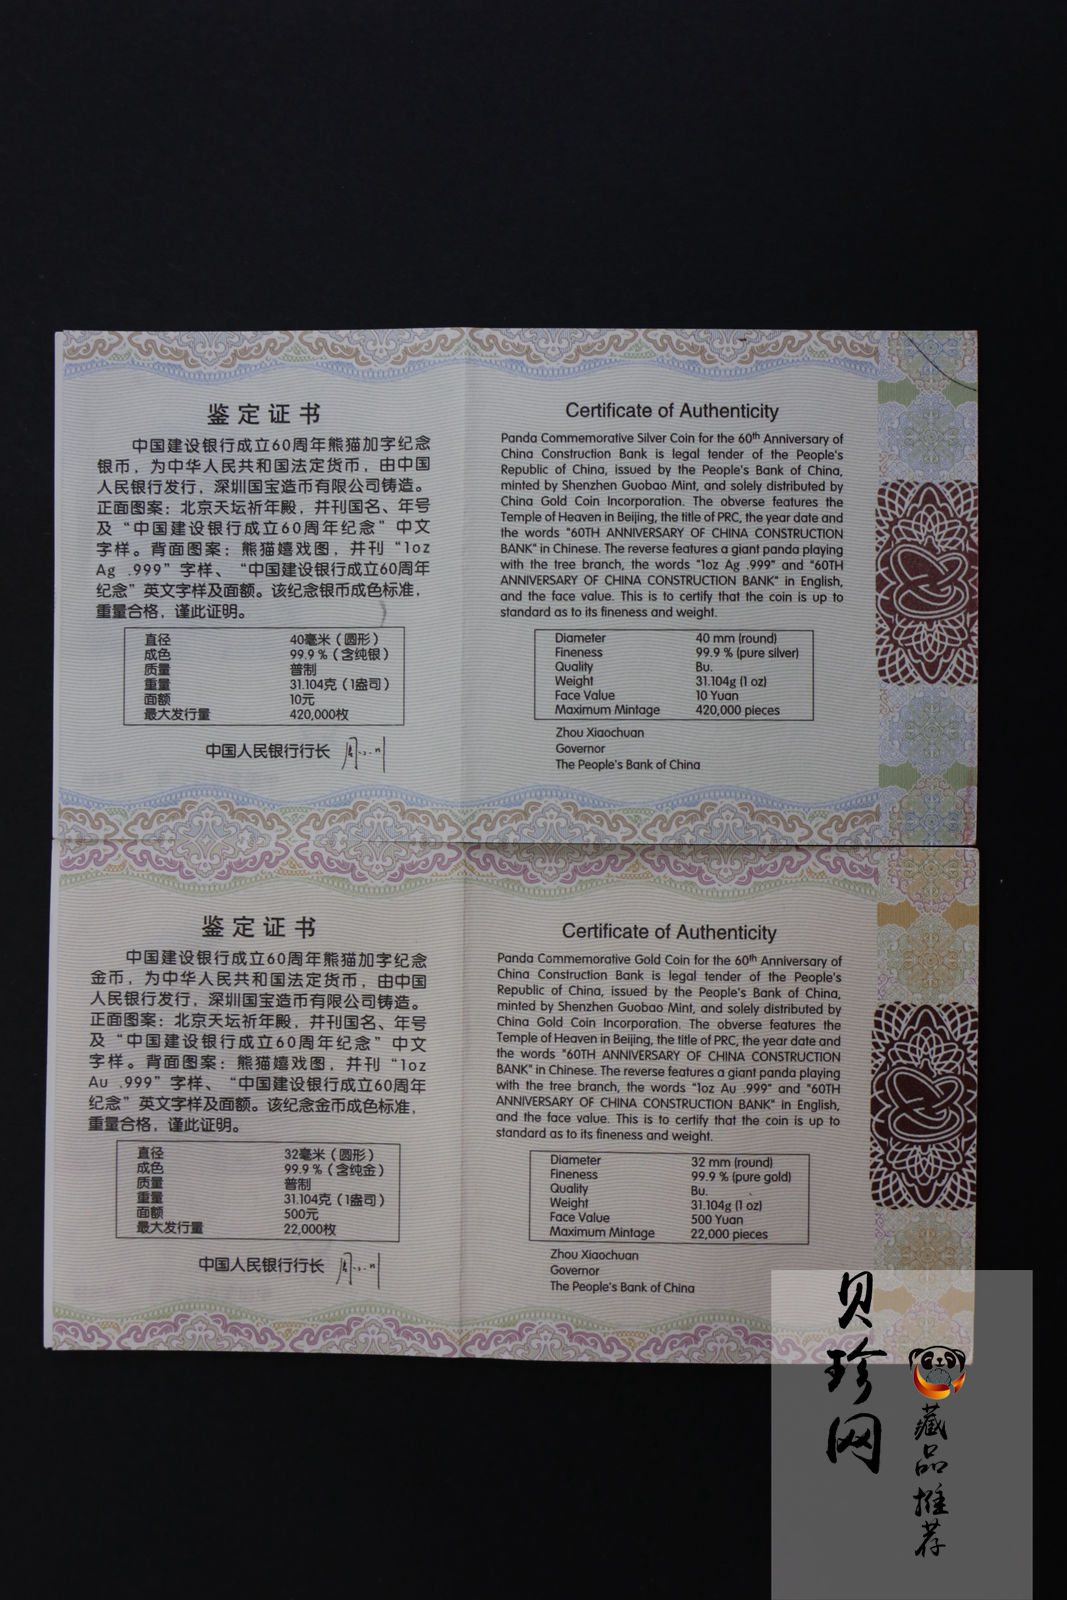 鉴定证书
中国建设银行成立60周年熊猫加字纪念
银币，为中华人民共和国法定货币，由中国
人民银行发行，深圳国宝造币有限公司铸造。
正面图案：北京天坛祈年殿，并刊国名、年号
及“中国建设银行成立60周年纪念”中文
字样。背面图案：熊猫嬉戏图，并刊“1oz
Ag .999”字样、“中国建设银行成立60周年
纪念”英文字样及面额。该纪念银币成色标准，
重量合格，谨此证明。
直径 40毫米（圆形）
成色 99.9％（含纯银）
质量 普制
重量 31.104克（1盎司）
面额 10元
最大发行量 420,000枚
中国人民银行行长
Certificate of Authenticity
Panda Commemorative Silver Coin for the 60th Anniversary of
China Construction Bank is legal tender of the People's
Republic of China, issued by the People's Bank of China,
minted by Shenzhen Guobao Mint, and solely distributed by
China Gold Coin Incorporation. The obverse features the
Temple of Heaven in Beijing, the title of PRC, the year date and
the words "60TH ANNIVERSARY OF CHINA CONSTRUCTION
BANK" in Chinese. The reverse features a giant panda playing
with the tree branch, the words "1oz Ag .999" and "60TH
ANNIVERSARY OF CHINA CONSTRUCTION BANK" in English,
and the face value. This is to certify that the coin is up to
standard as to its fineness and weight.
Diameter 40 mm (round)
Fineness 99.9 % (pure silver)
Quality Bu.
Weight 31.104g (1 oz)
Face Value 10 Yuan
Maximum Mintage 420,000 pieces
Zhou Xiaochuan
Governor
The People's Bank of China
鉴定证书
中国建设银行成立60周年熊猫加字纪念
金币，为中华人民共和国法定货币，由中国
人民银行发行，深圳国宝造币有限公司铸造。
正面图案：北京天坛祈年殿，并刊国名、年号
及“中国建设银行成立60周年纪念”中文
字样。背面图案：熊猫嬉戏图，并刊“1oz
Au .999”字样、“中国建设银行成立60周年
纪念”英文字样及面额。该纪念金币成色标准，
重量合格，谨此证明。
直径 32毫米（圆形）
成色 99.9％（含纯金）
质量 普制
重量 31.104克（1盎司）
面额 500元
最大发行量 22,000枚
中国人民银行行长
Certificate of Authenticity
Panda Commemorative Gold Coin for the 60th Anniversary of
China Construction Bank is legal tender of the People's
Republic of China, issued by the People's Bank of China,
minted by Shenzhen Guobao Mint, and solely distributed by
China Gold Coin Incorporation. The obverse features the
Temple of Heaven in Beijing, the title of PRC, the year date and
the words "60TH ANNIVERSARY OF CHINA CONSTRUCTION
BANK" in Chinese. The reverse features a giant panda playing
with the tree branch, the words "1oz Au .999" and "60TH
ANNIVERSARY OF CHINA CONSTRUCTION BANK" in English,
and the face value. This is to certify that the coin is up to
standard as to its fineness and weight.
Diameter 32 mm (round)
Fineness 99.9 % (pure gold)
Quality Bu.
Weight 31.104g (1 oz)
Face Value 500 Yuan
Maximum Mintage 22,000 pieces
Zhou Xiaochuan
Governor
The People's Bank of China
贝珍网
藏品推荐